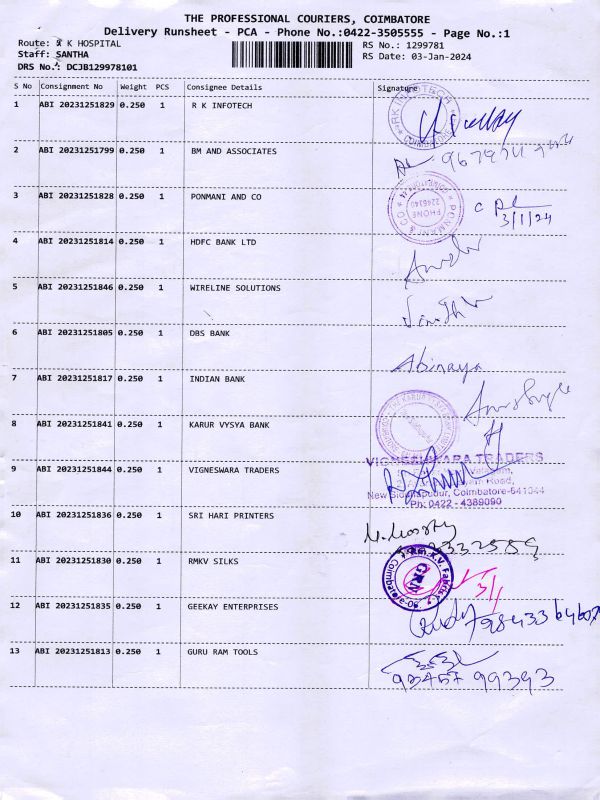 THE PROFESSIONAL COURIERS, COIMBATORE
Delivery Runsheet - PCA - Phone No.:0422-3505555 - Page No.:1
Route: K HOSPITAL
RS No.: 1299781
Staff: SANTHA
RS Date: 03-Jan-2024
DRS No.: DCJB129978101
S No Consignment No Weight PCS Consignee Details Signature
1 ABI 20231251829 0.250 1 R K INFOTECH
2 ABI 20231251799 0.250 1 BM AND ASSOCIATES
3 ABI 20231251828 0.250 1 PONMANI AND CO
PHONE
3/1/24
4 ABI 20231251814 0.250 1 HDFC BANK LTD
5 ABI 20231251846 0.250 1 WIRELINE SOLUTIONS
6 ABI 20231251805 0.250 1 DBS BANK
Abinaya
7 ABI 20231251817 0.250 1 INDIAN BANK
8 ABI 20231251841 0.250 1 KARUR VYSYA BANK
9 ABI 20231251844 0.250 1 VIGNESWARA TRADERS
VIGNESHWARA TRADERS
Road,
Coimbatore-641044
Ph: 0422 - 4389090
10 ABI 20231251836 0.250 1 SRI HARI PRINTERS
11 ABI 20231251830 0.250 1 RMKV SILKS
GRN
3/1
12 ABI 20231251835 0.250 1 GEEKAY ENTERPRISES
13 ABI 20231251813 0.250 1 GURU RAM TOOLS
93457 99393